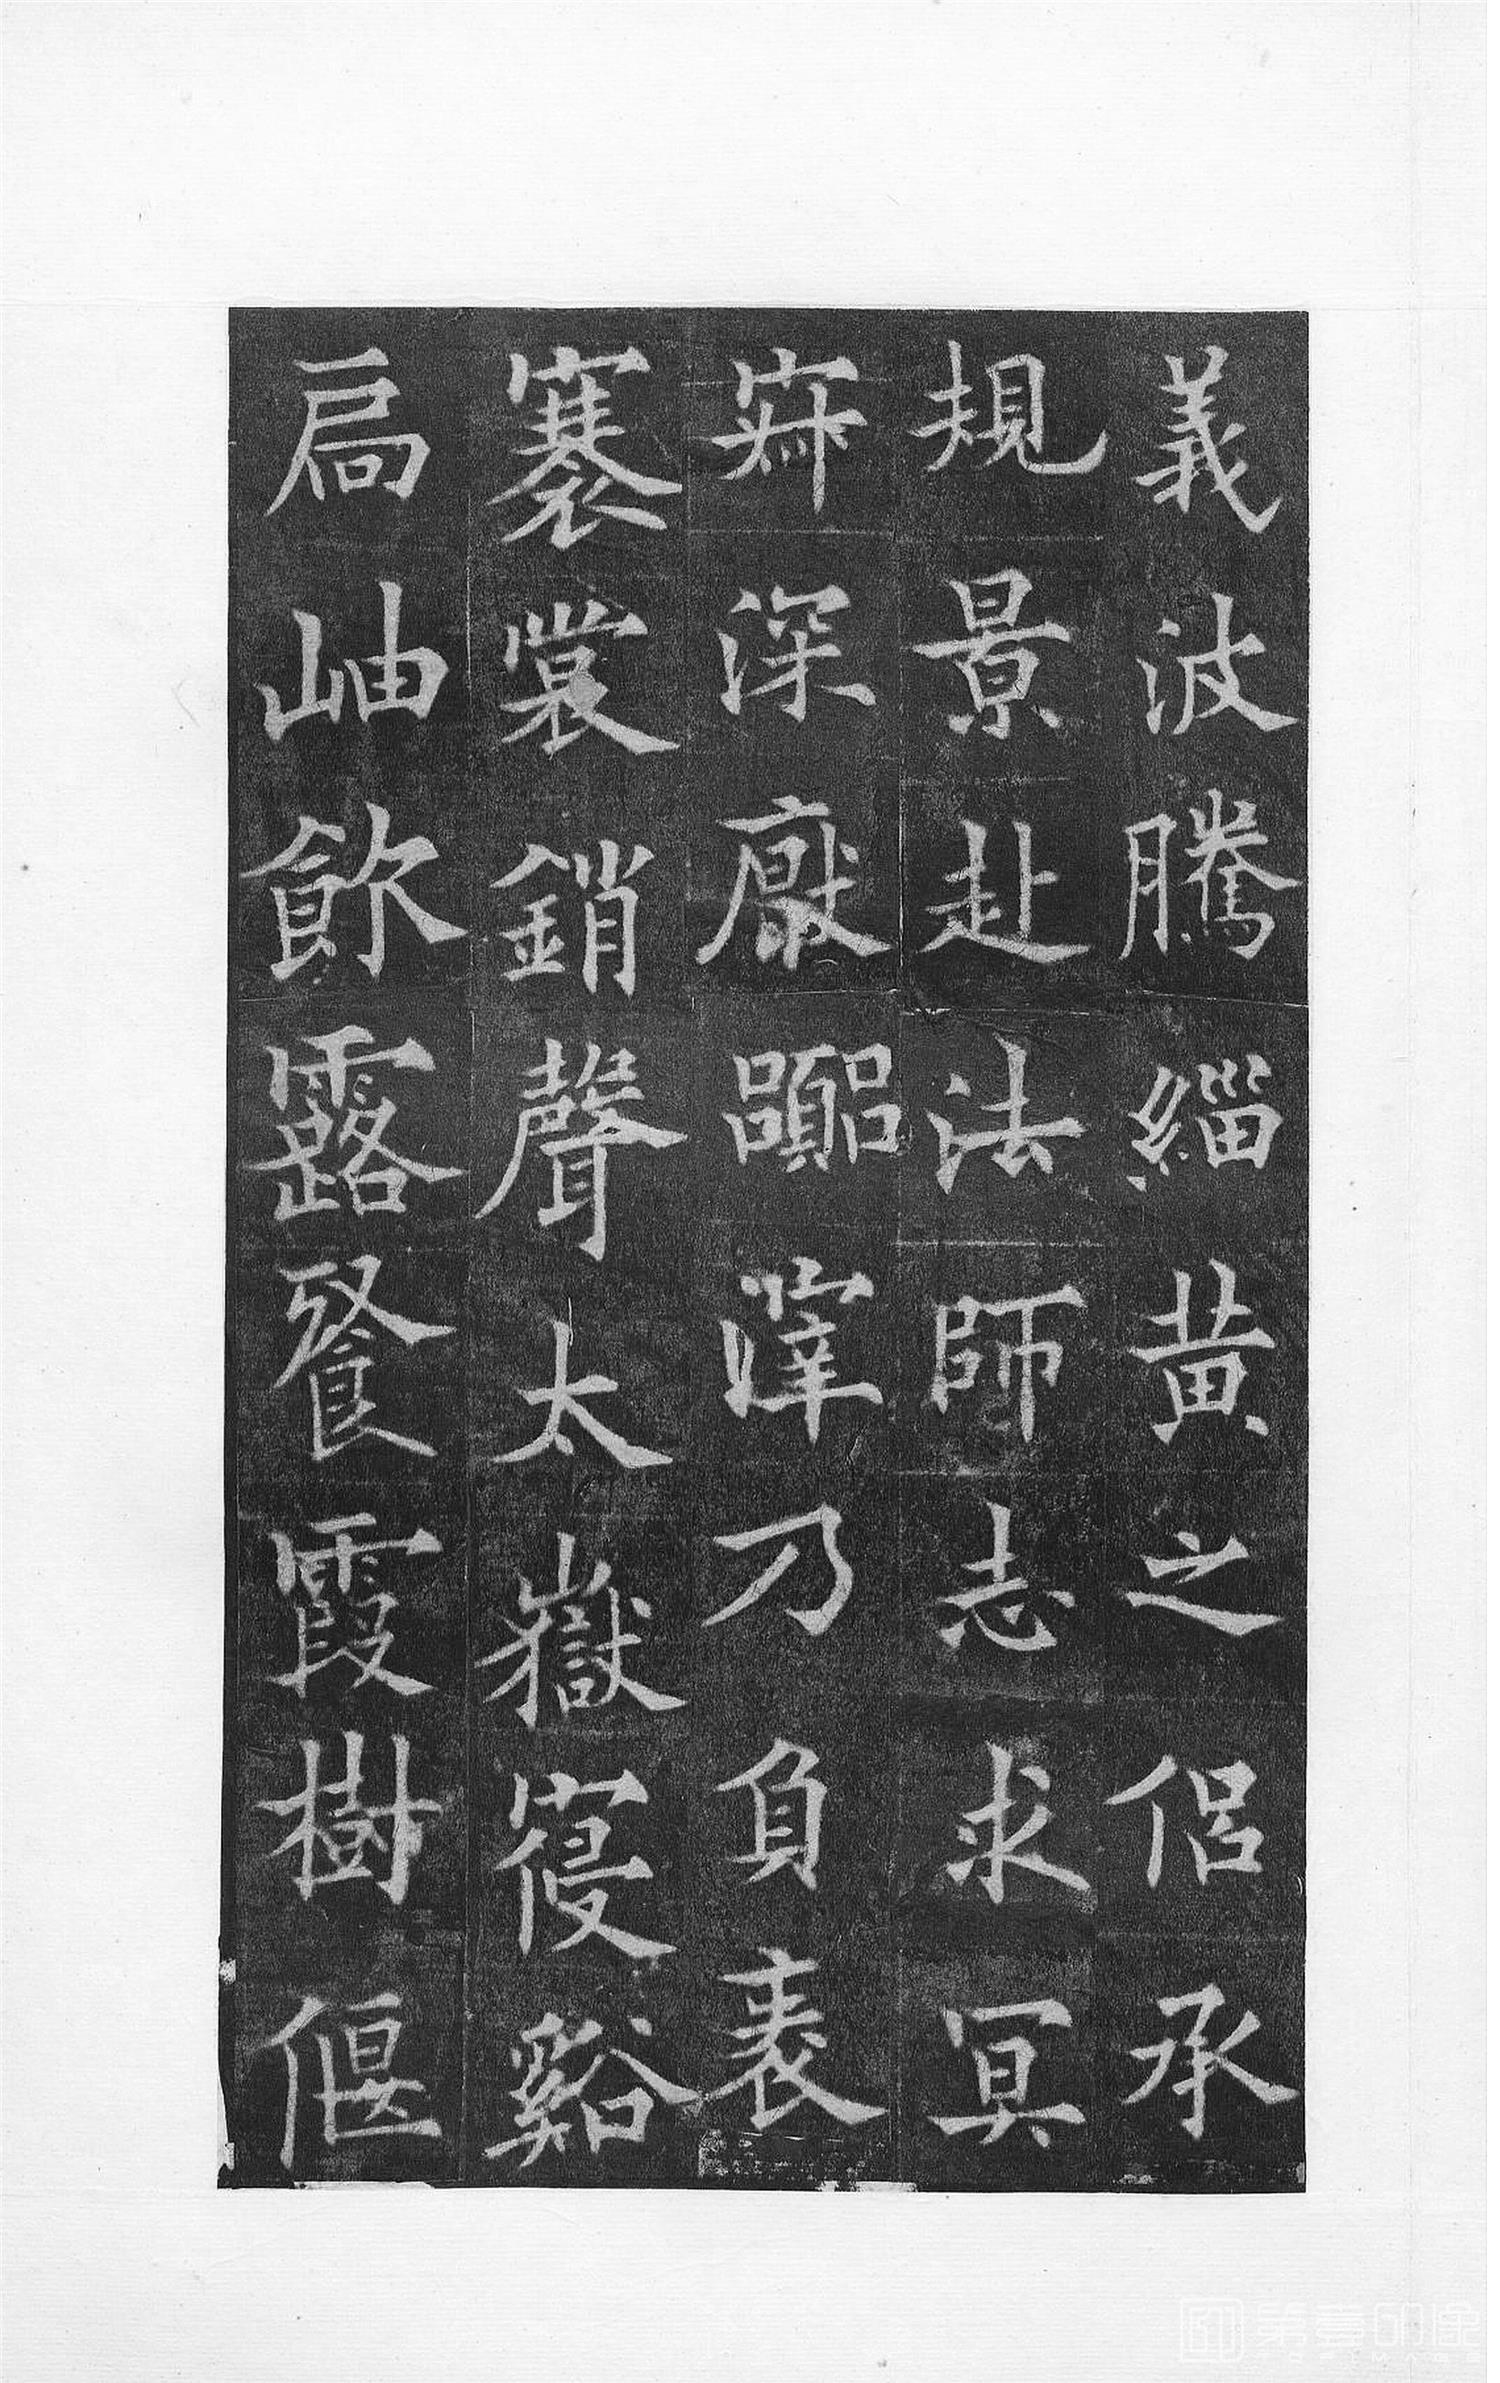 義波騰緇黃之侶承
規景赴法師志求冥
寂深厭囂滓乃負裘
褰裳銷聲太嶽寑谿
扃岫飲露餐霞樹偃